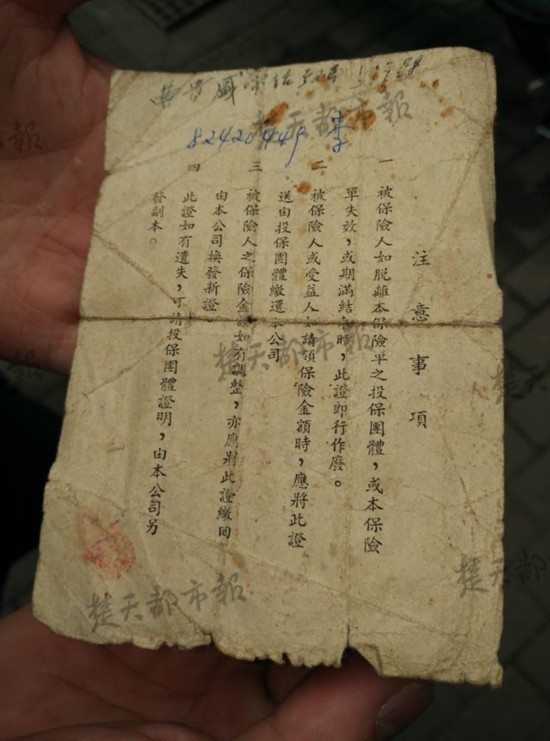 注意事項
一 被保險人如脫離本保險單之投保團體，或本保險
單失效，或期滿結時，此證即行作廢。
二 被保險人或受益人請領保險金額時，應將此證
送由投保團體繳還本公司
三 被保險人之保險金額如有調整，亦應將此證繳回
由本公司換發新證
四 此證如有遺失，可請投保團體證明，由本公司另
發副本。
楚天都市報
楚天都市報
楚天都市報